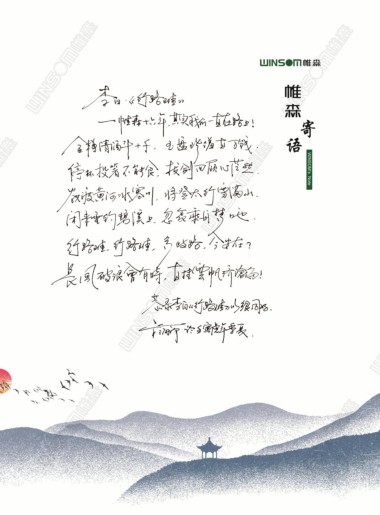 WINSOM帷森
帷森
寄语
李白《行路难》
一帷森十六年,其实我们一直在路上!
金樽清酒斗十千,玉盘珍羞直万钱。
停杯投箸不能食,拔剑四顾心茫然。
欲渡黄河冰塞川,将登太行雪满山。
闲来垂钓碧溪上,忽复乘舟梦日边。
行路难,行路难,多歧路,今安在?
长风破浪会有时,直挂云帆济沧海!
恭录李白《行路难》以